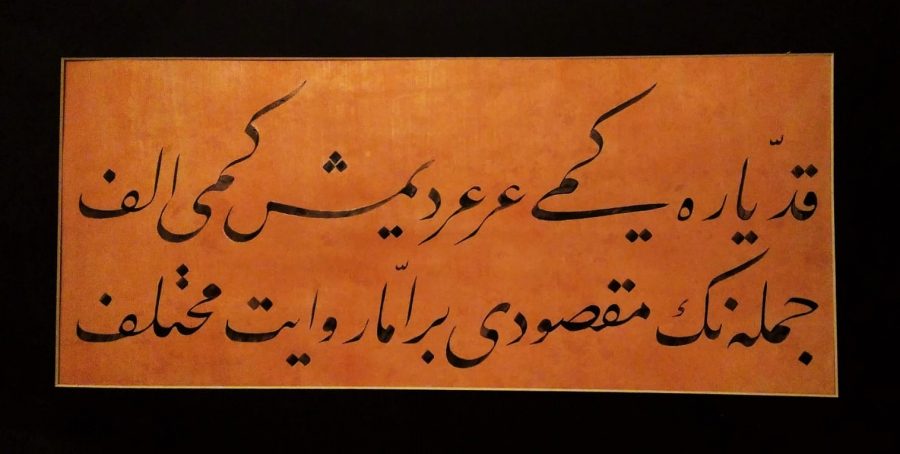 قدّ یاره کیمے عرعر دیمش کیمی الف
جمله نك مقصودی بر امّا روایت مختلف